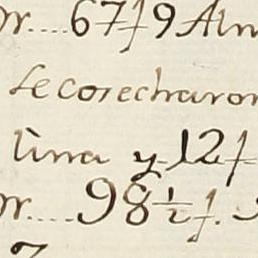 67f 9 Alm
se cosecharon
una y 12f
98 ½ f.